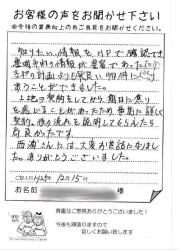 お客様の声をお聞かせ下さい
※今後の業務向上の為ご意見をお聞かせください。
知りたい情報をHPで確認でき
豊岡市町の情報が豊富であったので
当初の計画よりも良い物件にめぐり
あうことができました。
土地の契約をしてから期日に焦り
を感じることがあったため事前に詳しく
契約の流れを説明してもらえたら
有良かったです。
西浦さんには大変お世話になりまし
た。ありがとうございました。
ご記入日 年 2月15日
お名前
貴重なご意見ありがとうございました!
今後も頑張りますので
宜しくお願い致します